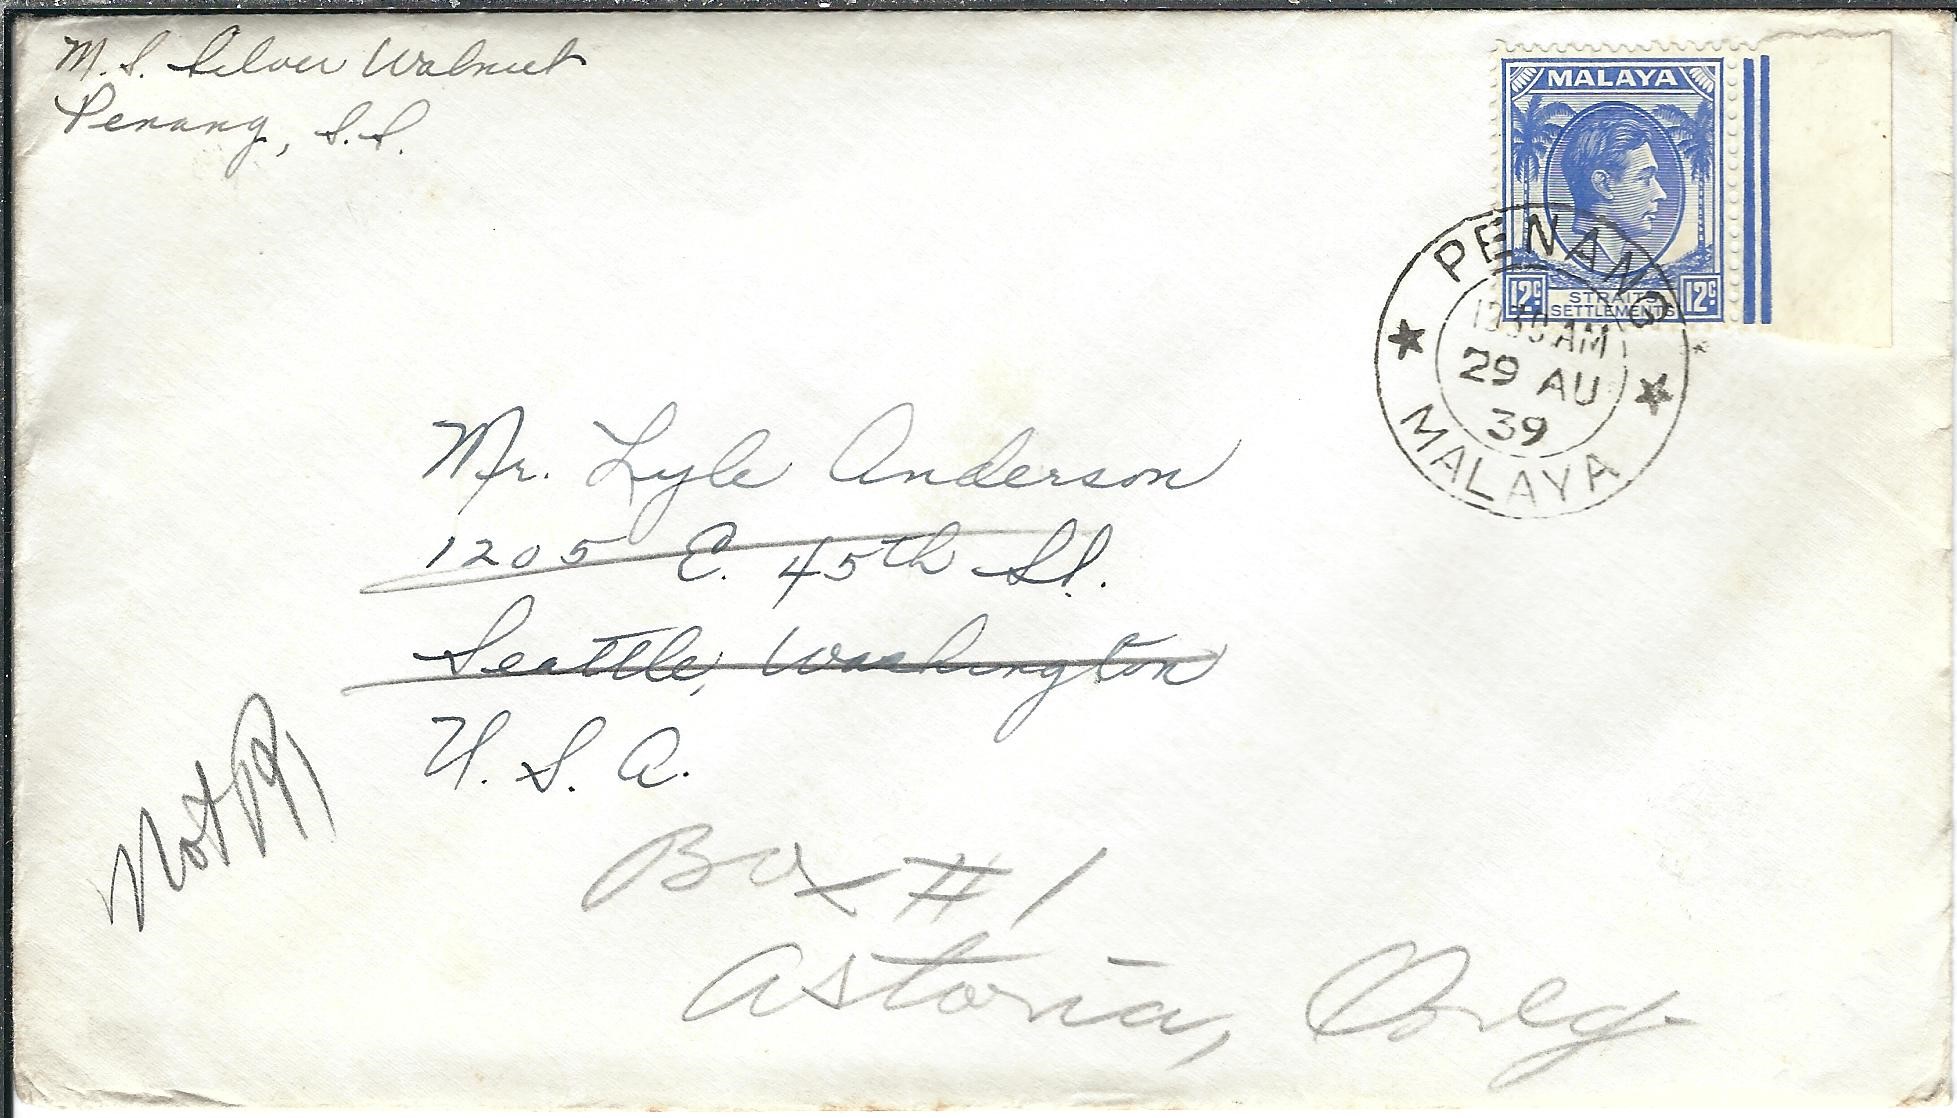 M. S. Silver Walnut
Penang, S.S.
MALAYA
12c STRAITS SETTLEMENTS 12c
PENANG
AM
29 AU
39
MALAYA
Mr. Lyle Anderson
1205 E. 45th St.
Seattle, Washington
U. S. A.
Not
Box #1
Astoria, Oreg.